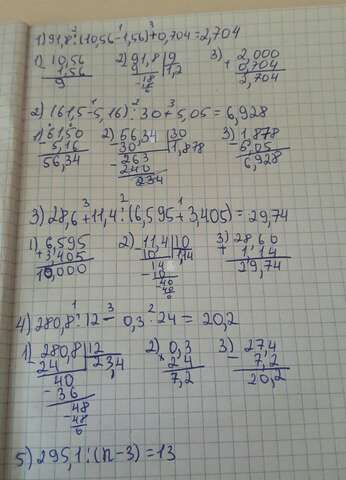 1) 91,8 : (10,56 - 1,56) + 0,704 = 2,704
1) 10,56 2) 91,8 | 9 3) 2,000
- 1,56 9 | 1,2 + 0,704
9 - 18 2,704
18
2) (61,5 - 5,16) : 30 + 5,05 = 6,928
1) 61,50 2) 56,34 | 30 3) 1,878
- 5,16 - 30 | 1,878 - 5,05
56,34 - 263 6,928
240
234
3) 28,6 + 11,4 : (6,595 + 3,405) = 29,74
1) 6,595 2) 11,4 | 10 3) 28,60
+ 3,405 10 | 1,14 + 1,14
10,000 14 29,74
- 10
40
40
4) 280,8 : 12 - 0,3 · 24 = 20,2
1) 280,8 | 12 2) 0,3 3) 27,4
24 | 23,4 × 24 - 7,2
40 7,2 20,2
- 36
48
- 48
0
5) 295,1 : (n - 3) = 13